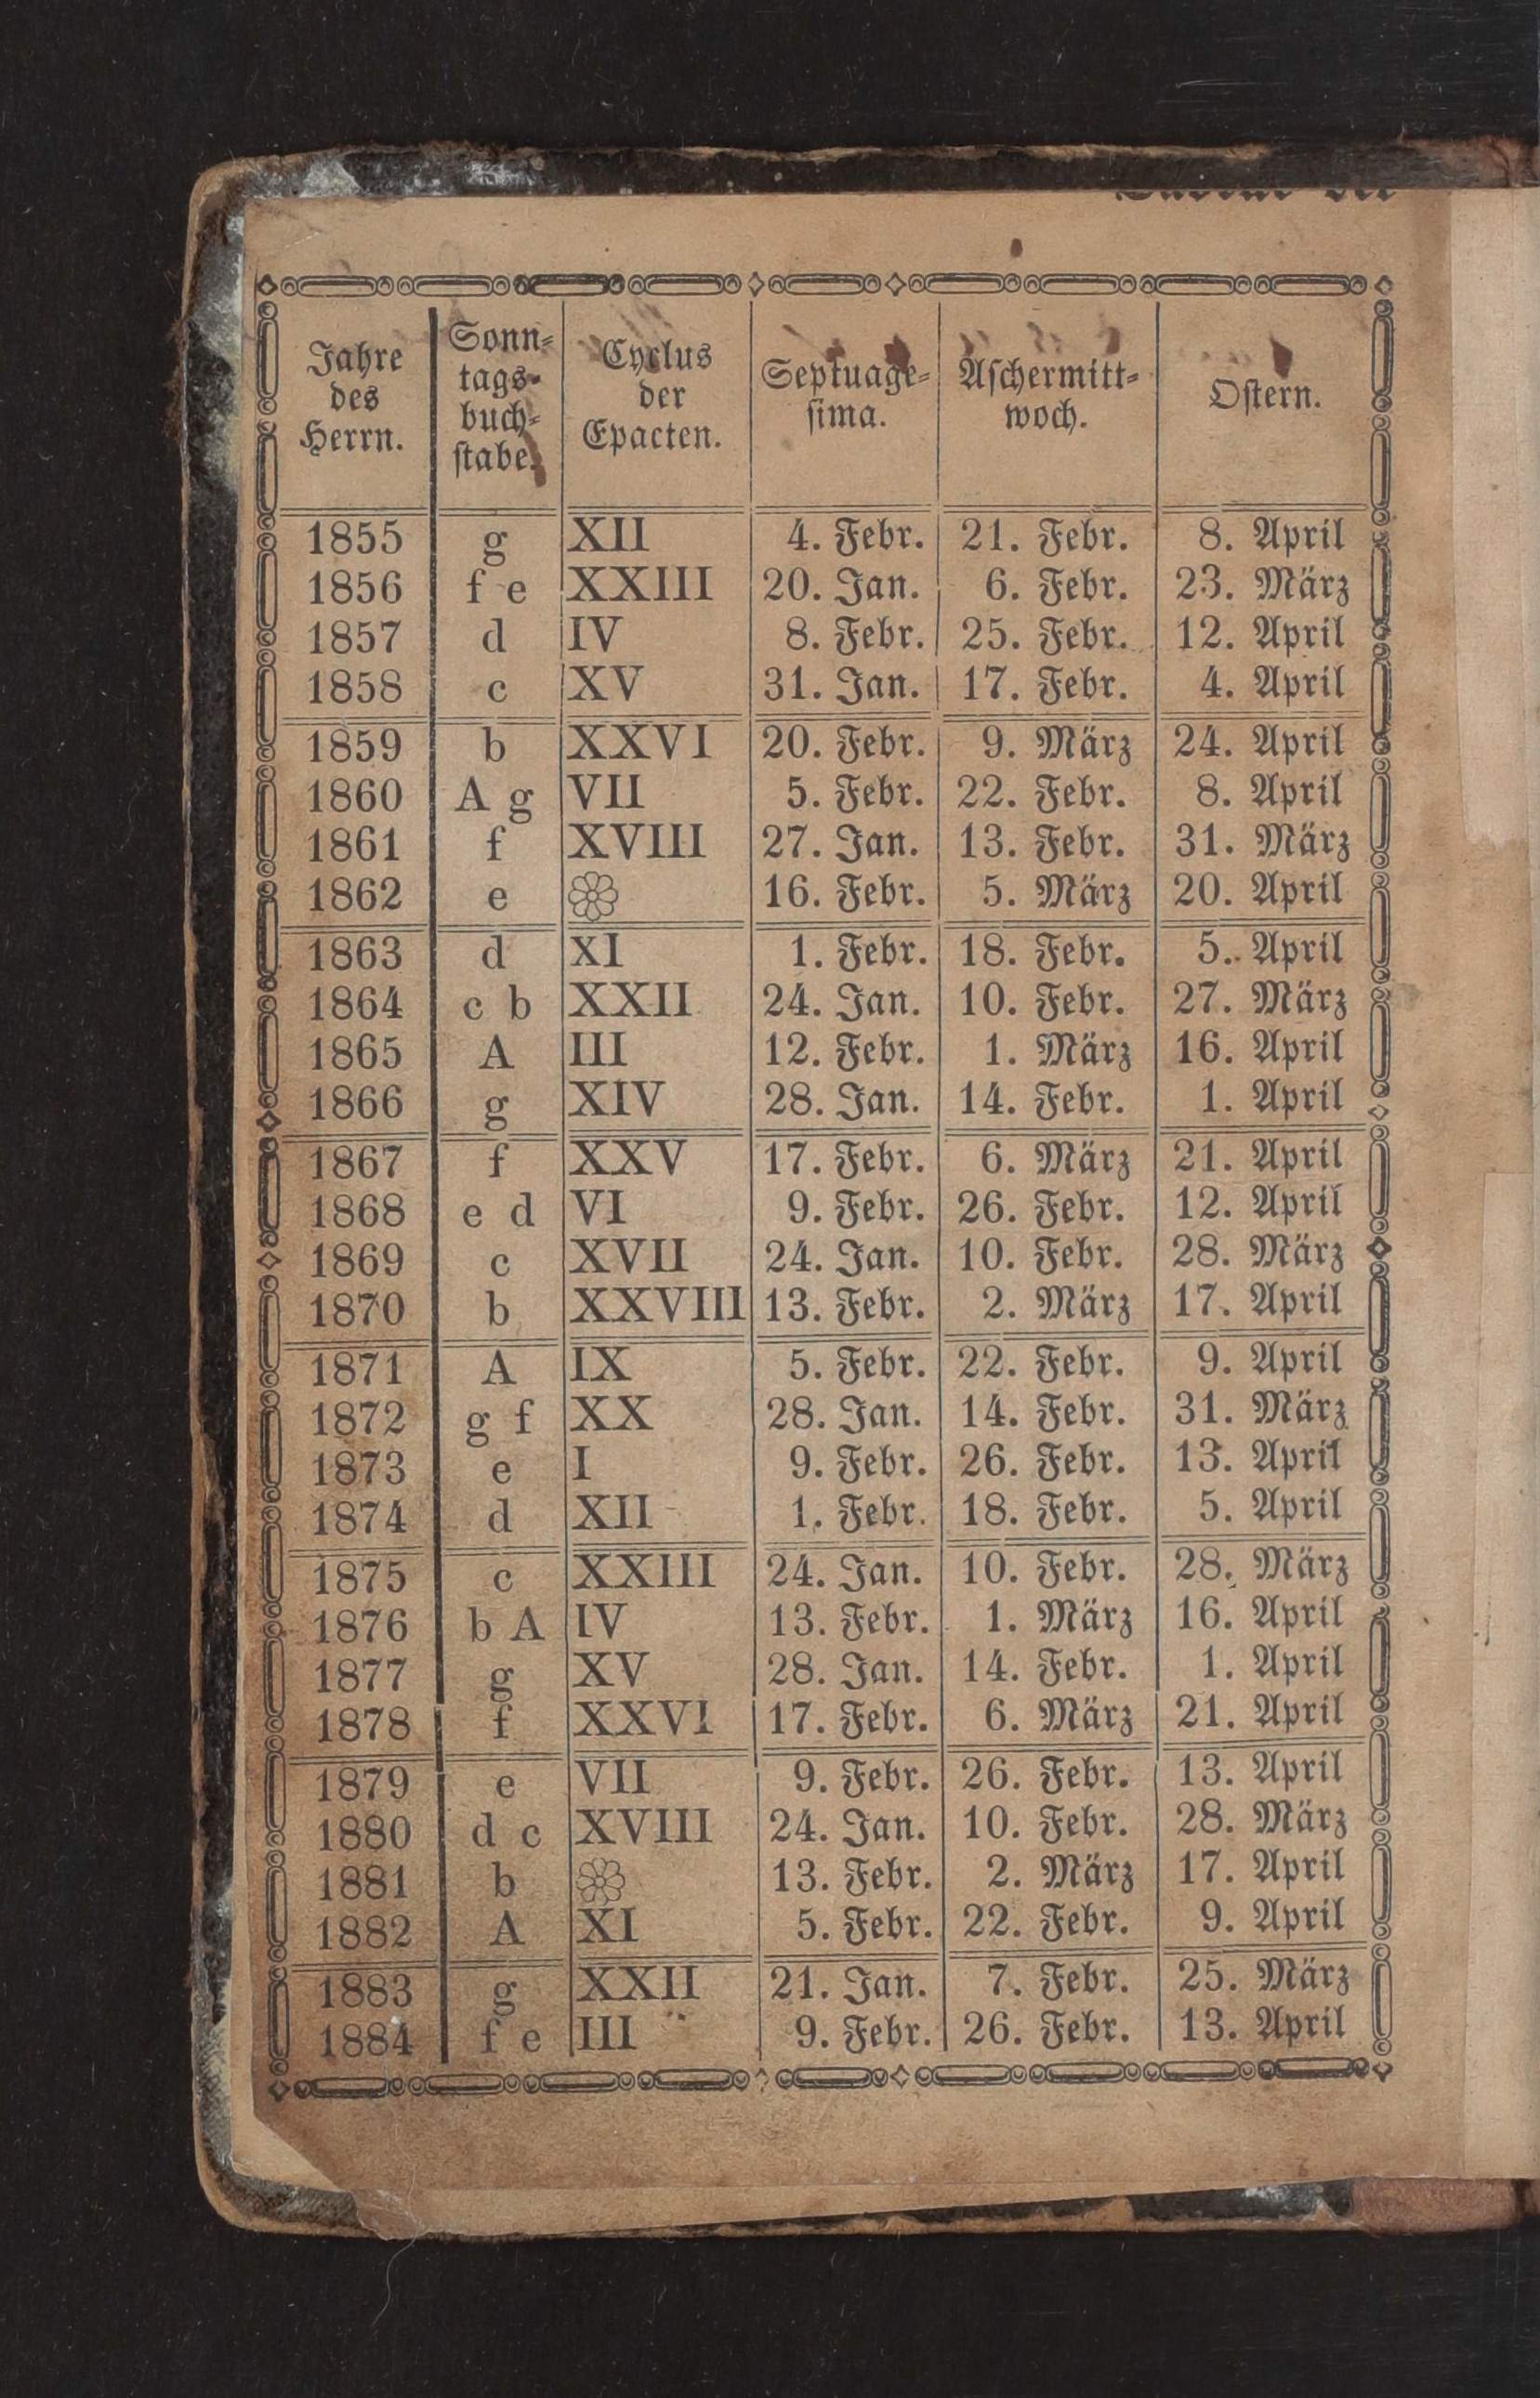 Jahre des Herrn. Sonn- tags- buch- stabe. Cyclus der Epacten. Septuage- sima. Aschermitt- woch. Ostern.
1855 g XII 4. Febr. 21. Febr. 8. April
1856 f e XXIII 20. Jan. 6. Febr. 23. März
1857 d IV 8. Febr. 25. Febr. 12. April
1858 c XV 31. Jan. 17. Febr. 4. April
1859 b XXVI 20. Febr. 9. März 24. April
1860 A g VII 5. Febr. 22. Febr. 8. April
1861 f XVIII 27. Jan. 13. Febr. 31. März
1862 e 16. Febr. 5. März 20. April
1863 d XI 1. Febr. 18. Febr. 5. April
1864 c b XXII 24. Jan. 10. Febr. 27. März
1865 A III 12. Febr. 1. März 16. April
1866 g XIV 28. Jan. 14. Febr. 1. April
1867 f XXV 17. Febr. 6. März 21. April
1868 e d VI 9. Febr. 26. Febr. 12. April
1869 c XVII 24. Jan. 10. Febr. 28. März
1870 b XXVIII 13. Febr. 2. März 17. April
1871 A IX 5. Febr. 22. Febr. 9. April
1872 g f XX 28. Jan. 14. Febr. 31. März
1873 e I 9. Febr. 26. Febr. 13. April
1874 d XII 1. Febr. 18. Febr. 5. April
1875 c XXIII 24. Jan. 10. Febr. 28. März
1876 b A IV 13. Febr. 1. März 16. April
1877 g XV 28. Jan. 14. Febr. 1. April
1878 f XXVI 17. Febr. 6. März 21. April
1879 e VII 9. Febr. 26. Febr. 13. April
1880 d c XVIII 24. Jan. 10. Febr. 28. März
1881 b 13. Febr. 2. März 17. April
1882 A XI 5. Febr. 22. Febr. 9. April
1883 g XXII 21. Jan. 7. Febr. 25. März
1884 f e III 9. Febr. 26. Febr. 13. April